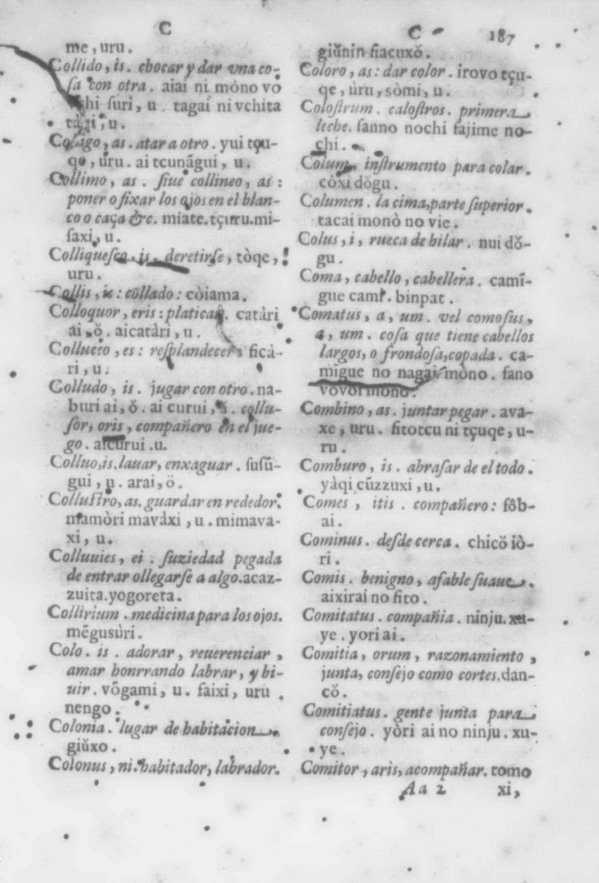 C
me, uru.
Collido, is. chocar y dar vna co-
sa con otra. aiai ni mòno vo
chi suri, u. tagai ni vchita
tàgi, u.
Coligo, as. atar a otro. yui tçu-
qe, ùru. ai tcunãgui, u.
Collimo, as. siue collineo, as:
poner o fixar los ojos en el blan-
co o caça &c. miate. tçuru. mi-
saxi, u.
Colliquesco, is. deretirse, tòqe,
uru.
Collis, is: collado: còiama.
Colloquor, eris: platicar. catàri
ai, ŏ. aicatàri, u.
Colluceo, es: resplandecer: ficà-
ri, u.
Colludo, is. jugar con otro. na-
buri ai, ŏ. ai curui, u. collu-
sor, oris, compañero en el jue-
go. aicurui. u.
Colluo, is. lauar, enxaguar. susŭ-
gui, u. arai, ŏ.
Collustro, as. guardar en rededor.
mamòri mavàxi, u. mimava-
xi, u.
Colluuies, ei. suziedad pegada
de entrar o llegarse a algo. acaz-
zuita. yogoreta.
Collirium. medicina para los ojos.
mẽgusùri.
Colo. is. adorar, reuerenciar,
amar honrrando labrar, y bi-
uir. võgami, u. saixi, uru
nengo.
Colonia. lugar de habitacion
giŭxo.
Colonus, ni. habitador, labrador.
C 187
giŭnin fiacuxŏ.
Coloro, as: dar color. irovo tçu-
qe, ùru, sòmi, u.
Colostrum. calostros. primera
leche. sanno nochi fajime no-
chi.
Colum, instrumento para colar.
còxi dŏgu.
Columen. la cima, parte superior.
tacai monò no vie.
Colus, i, rueca de hilar. nui dŏ-
gu.
Coma, cabello, cabellera. camĩ-
gue cami. binpat.
Comatus, a, um. vel comosus,
a, um. cosa que tiene cabellos
largos, o frondosa, copada. ca-
migue no nagai mòno. fano
vovoi mono.
Combino, as. juntar pegar. ava-
xe, uru. fitotcu ni tçuqe, u-
ru.
Comburo, is. abrasar de el todo.
yàqi cŭzzuxi, u.
Comes, itis. compañero: fôb-
ai.
Cominus. desde cerca. chicŏ iô-
ri.
Comis. benigno, afable suaue.
aixirai no fito.
Comitatus. compañia. ninju. xu-
ye. yori ai.
Comitia, orum, razonamiento,
junta, consejo como cortes. dan-
cŏ.
Comitiatus. gente junta para
consejo. yòri ai no ninju. xu-
ye.
Comitor, aris, acompañar. tomo
Aa 2 xi,